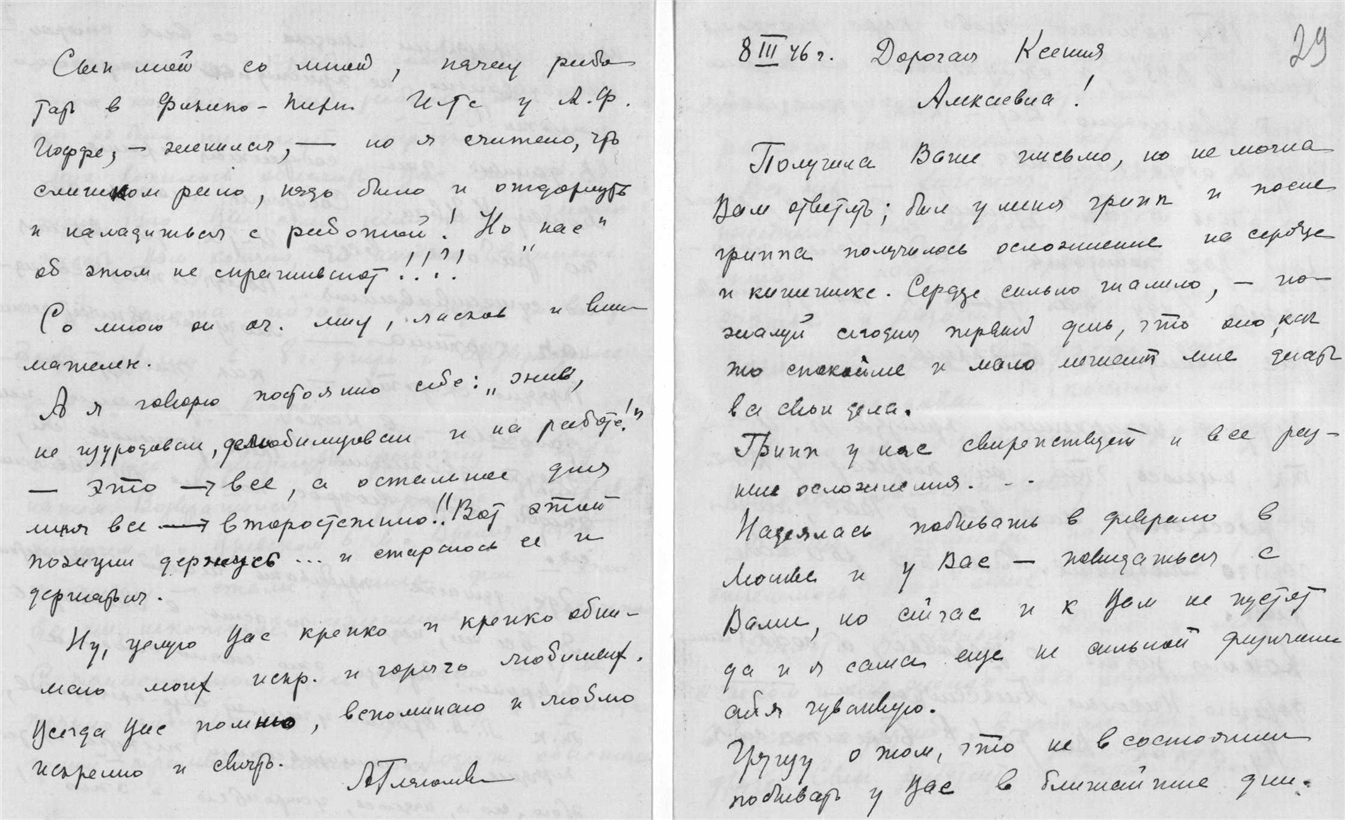 29
8 III 46 г. Дорогая Ксения
Алексеевна!
Получила Ваше письмо, но не могла
Вам ответить; был у меня грипп и после
гриппа получилось осложнение на сердце
и кишечнике. Сердце сильно шалило, – по-
жалуй сегодня первый день, что оно как
то спокойнее и мало мешает мне делать
все свои дела.
Грипп у нас свирепствует и все раз-
ные осложнения. . .
Надеялась побывать в феврале в
Москве и у Вас – повидаться с
Вами, но сейчас и к Вам не пустят
да и я сама еще не сильной физически
себя чувствую.
Грущу о том, что не в состоянии
побывать у Вас в ближайшие дни.
Сын мой со мной, начал рабо
тать в Физико-техн. И-те у А.Ф.
Иоффе, – женился, – но я считаю, что
слишком рано, надо было и отдохнуть
и наладиться с работой! Но "нас"
об этом не спрашивают!!!!
Со мною он оч. мил, ласков и вни
мателен.
А я говорю постоянно себе: „живи,
не юродствуй, и на работе!"
– это → все, а остальное для
меня все → второстепенно!! Вот этой
позиции держусь... и стараюсь ее и
держаться.
Ну, целую Вас крепко и крепко обни-
маю моих искр. и горячо любимых.
Всегда Вас помню, вспоминаю и люблю
искренно и свято.